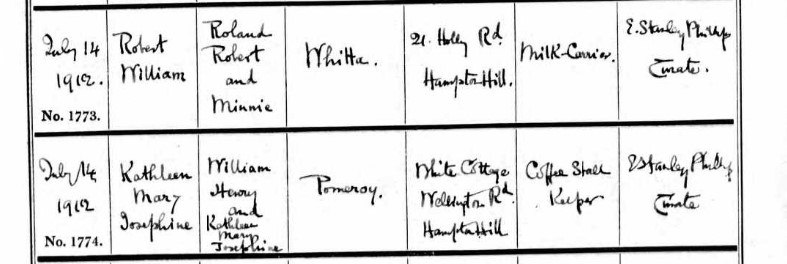 July 14
1912.
No. 1773.
Robert
William
Roland
Robert
and
Minnie
Whitta.
21. Holly Rd.
Hampton Hill.
Milk-Carrier.
E. Stanley Phillips
Curate.
July 14
1912
No. 1774.
Kathleen
Mary
Josephine
William
Henry
and
Kathleen
Mary
Josephine
Pomeroy.
White Cottage
Wellington Rd.
Hampton Hill
Coffee Stall
Keeper
E Stanley Phillips
Curate